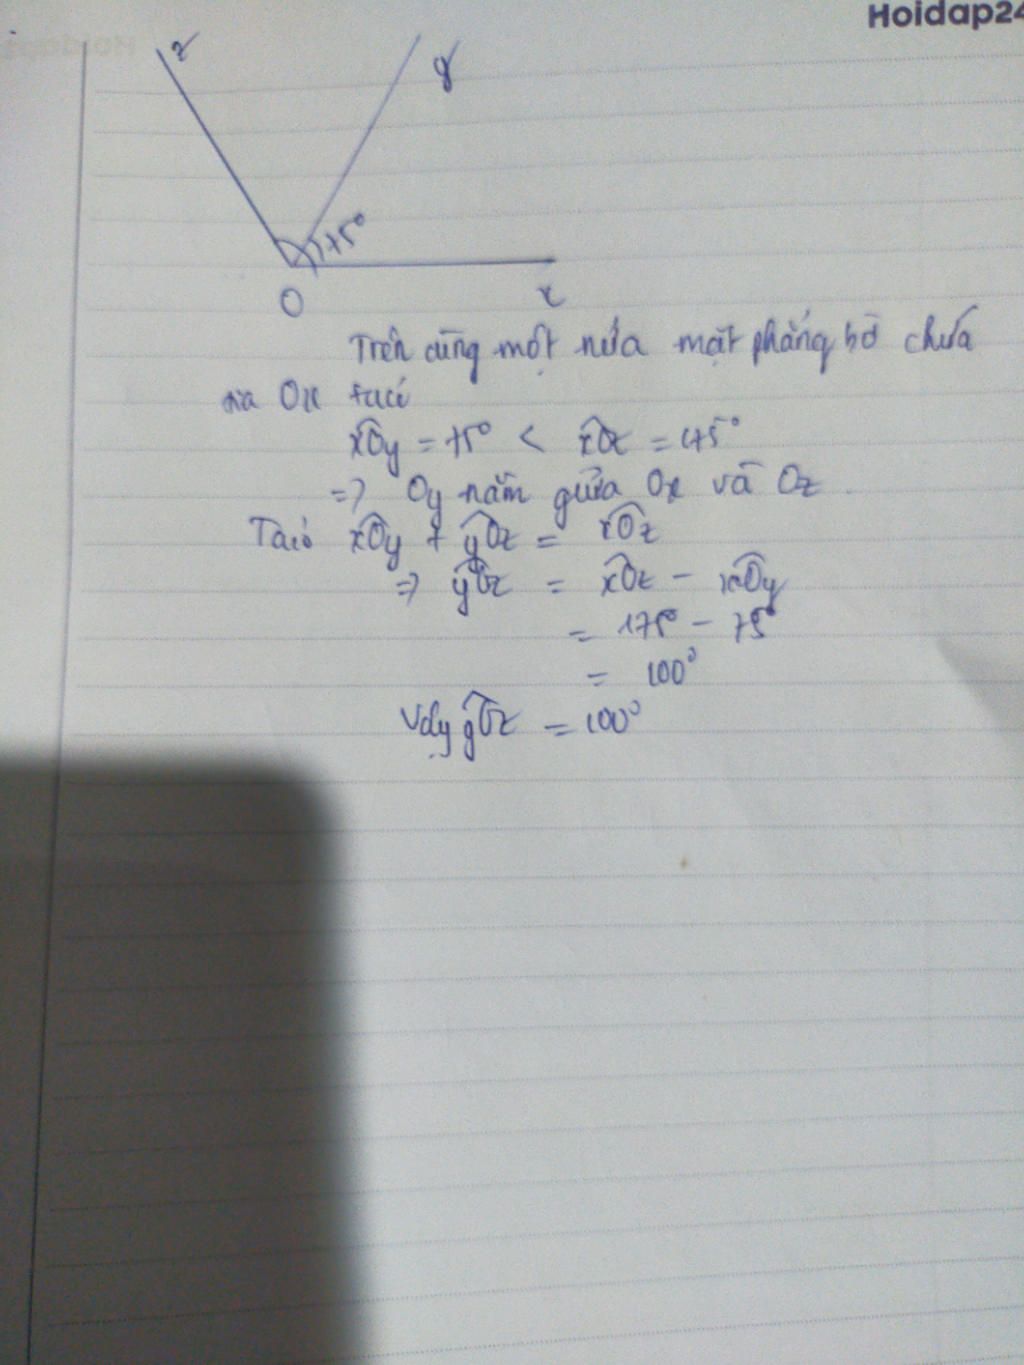 Hoidap24
z
y
75°
O
x
Trên cùng một nửa mặt phẳng bờ chứa
tia Ox ta có
xÔy = 75° < xÔz = 175°
=> Oy nằm giữa Ox và Oz
Ta có xÔy + yÔz = xÔz
=> yÔz = xÔz - xÔy
= 175° - 75°
= 100°
Vậy yÔz = 100°